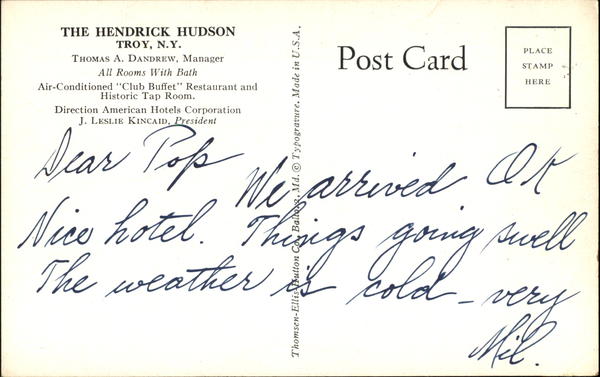 THE HENDRICK HUDSON
TROY, N.Y.
THOMAS A. DANDREW, Manager
All Rooms With Bath
Air-Conditioned "Club Buffet" Restaurant and
Historic Tap Room.
Direction American Hotels Corporation
J. LESLIE KINCAID, President
Thomsen-Ellis-Hutton Co., Balto., Md. © Typogravure. Made in U.S.A.
Post Card
PLACE
STAMP
HERE
Dear Pop
We arrived OK
Nice hotel. Things going swell
The weather is cold - very
Mil.